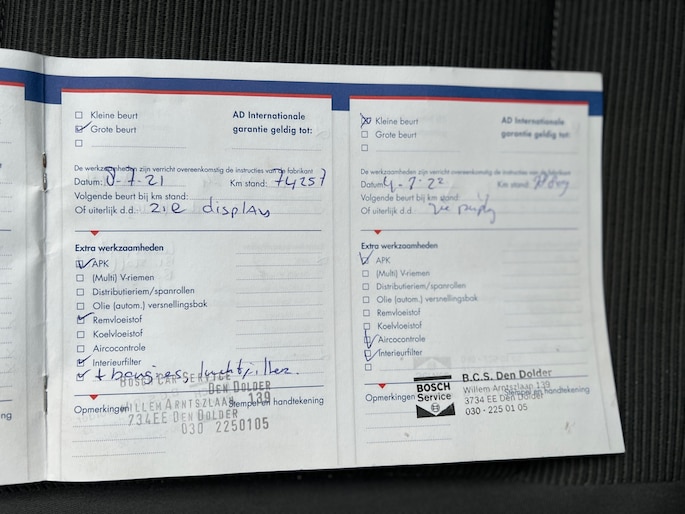 Kleine beurt
Grote beurt
AD Internationale
garantie geldig tot:
De werkzaamheden zijn verricht overeenkomstig de instructies van de fabrikant
Datum: 8-7-21 Km stand: 74257
Volgende beurt bij km stand:
Of uiterlijk d.d. zie display
Extra werkzaamheden
APK
(Multi) V-riemen
Distributieriem/spanrollen
Olie (autom.) versnellingsbak
Remvloeistof
Koelvloeistof
Aircocontrole
Interieurfilter
+ bougies, luchtfilter.
Opmerkingen
Stempel en handtekening
BOSCH CAR SERVICE
DEN DOLDER
WILLEM ARNTSZLAAN 139
734EE DEN DOLDER
030 2250105
Kleine beurt
Grote beurt
AD Internationale
garantie geldig tot:
De werkzaamheden zijn verricht overeenkomstig de instructies van de fabrikant
Datum: 4-7-22 Km stand:
Volgende beurt bij km stand:
Of uiterlijk d.d. zie display
Extra werkzaamheden
APK
(Multi) V-riemen
Distributieriem/spanrollen
Olie (autom.) versnellingsbak
Remvloeistof
Koelvloeistof
Aircocontrole
Interieurfilter
Opmerkingen
Stempel en handtekening
BOSCH
Service
B.C.S. Den Dolder
Willem Arntszlaan 139
3734 EE Den Dolder
030 - 225 01 05